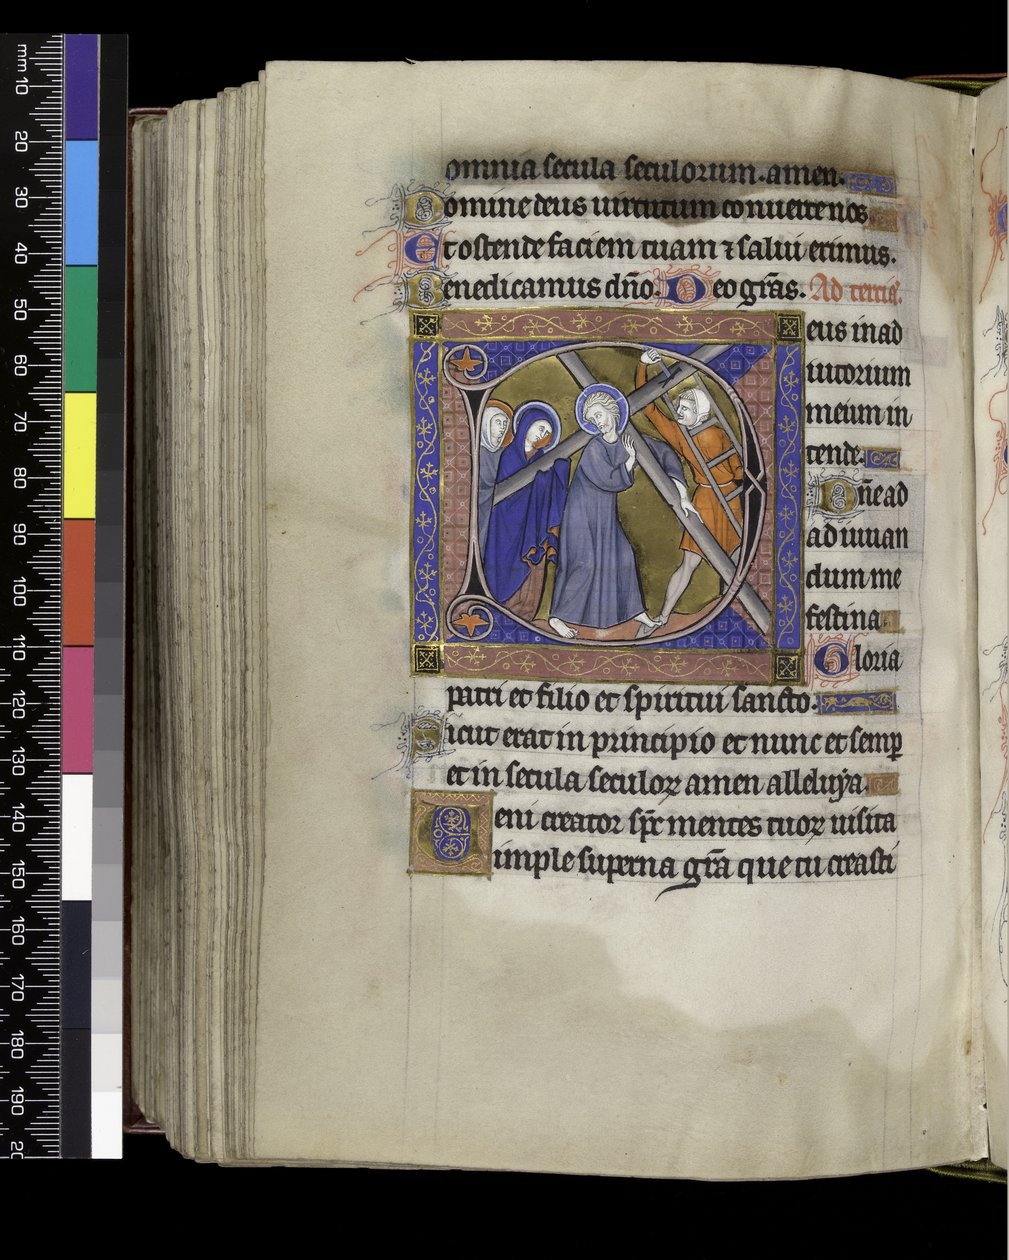 omnia secula seculorum. amen.
Domine deus uirtutum conuerte nos
Et ostende faciem tuam ⁊ salui erimus.
Benedicamus dn̄o. Deo gr̄as. Ad terciā.
Deus in ad
iutorium
meum in
tende.
Dn̄e ad
adiuuan
dum me
festina
Gloria
patri et filio et spiritui sancto.
Sicut erat in principio et nunc et semꝑ
et in secula seculoꝝ amen alleluya.
Ueni creator sp̄c mentes tuoꝝ uisita
imple superna gr̄a que tu creasti
mm 10
20
30
40
50
60
70
80
90
100
110
120
130
140
150
160
170
180
190